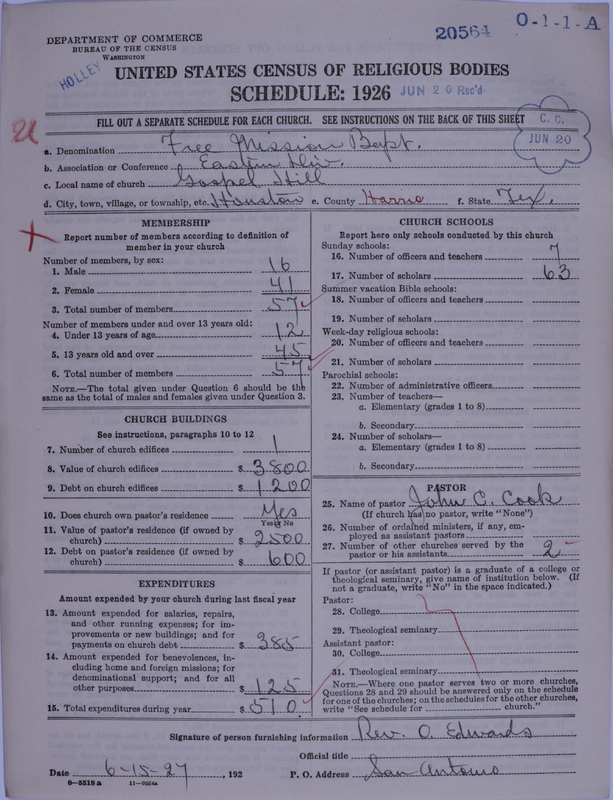 DEPARTMENT OF COMMERCE
BUREAU OF THE CENSUS
WASHINGTON
20564
0-1-1-A
HOLLEY
UNITED STATES CENSUS OF RELIGIOUS BODIES
SCHEDULE: 1926
JUN 20 Rec'd
FILL OUT A SEPARATE SCHEDULE FOR EACH CHURCH. SEE INSTRUCTIONS ON THE BACK OF THIS SHEET
C. C.
JUN 20
a. Denomination Free Mission Bapt.
b. Association or Conference Eastern Div.
c. Local name of church Gospel Hill
d. City, town, village, or township, etc. Houston e. County Harris f. State Tex.
MEMBERSHIP
Report number of members according to definition of
member in your church
Number of members, by sex:
1. Male 16
2. Female 41
3. Total number of members 57
Number of members under and over 13 years old:
4. Under 13 years of age 12
5. 13 years old and over 45
6. Total number of members 57
NOTE.—The total given under Question 6 should be the
same as the total of males and females given under Question 3.
CHURCH BUILDINGS
See instructions, paragraphs 10 to 12
7. Number of church edifices 1
8. Value of church edifices $ 3800
9. Debt on church edifices $ 1200
10. Does church own pastor's residence Yes
Yes or No
11. Value of pastor's residence (if owned by
church) $ 2500
12. Debt on pastor's residence (if owned by
church) $ 600
EXPENDITURES
Amount expended by your church during last fiscal year
13. Amount expended for salaries, repairs,
and other running expenses; for im-
provements or new buildings; and for
payments on church debt $ 385
14. Amount expended for benevolences, in-
cluding home and foreign missions; for
denominational support; and for all
other purposes $ 125
15. Total expenditures during year $ 510
CHURCH SCHOOLS
Report here only schools conducted by this church
Sunday schools:
16. Number of officers and teachers 7
17. Number of scholars 63
Summer vacation Bible schools:
18. Number of officers and teachers
19. Number of scholars
Week-day religious schools:
20. Number of officers and teachers
21. Number of scholars
Parochial schools:
22. Number of administrative officers
23. Number of teachers—
a. Elementary (grades 1 to 8)
b. Secondary
24. Number of scholars—
a. Elementary (grades 1 to 8)
b. Secondary
PASTOR
25. Name of pastor John C. Cook
(If church has no pastor, write "None")
26. Number of ordained ministers, if any, em-
ployed as assistant pastors
27. Number of other churches served by the
pastor or his assistants 2
If pastor (or assistant pastor) is a graduate of a college or
theological seminary, give name of institution below. (If
not a graduate, write "No" in the space indicated.)
Pastor:
28. College
29. Theological seminary
Assistant pastor:
30. College
31. Theological seminary
NOTE.—Where one pastor serves two or more churches,
Questions 28 and 29 should be answered only on the schedule
for one of the churches; on the schedules for the other churches,
write "See schedule for church."
Signature of person furnishing information Rev. O. Edwards
Official title
Date 6-15-27, 192 P. O. Address San Antonio
8-5518 a 11-9024a